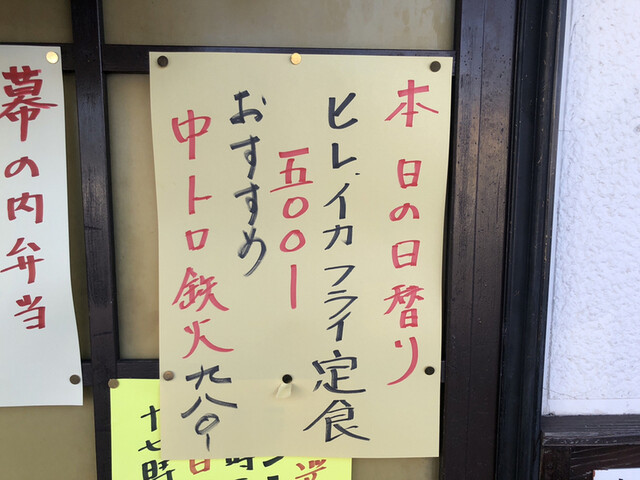 本日の日替り
ヒレ、イカフライ定食
五〇〇ー
おすすめ
中トロ鉄火九八〇ー
幕の内弁当
十七時